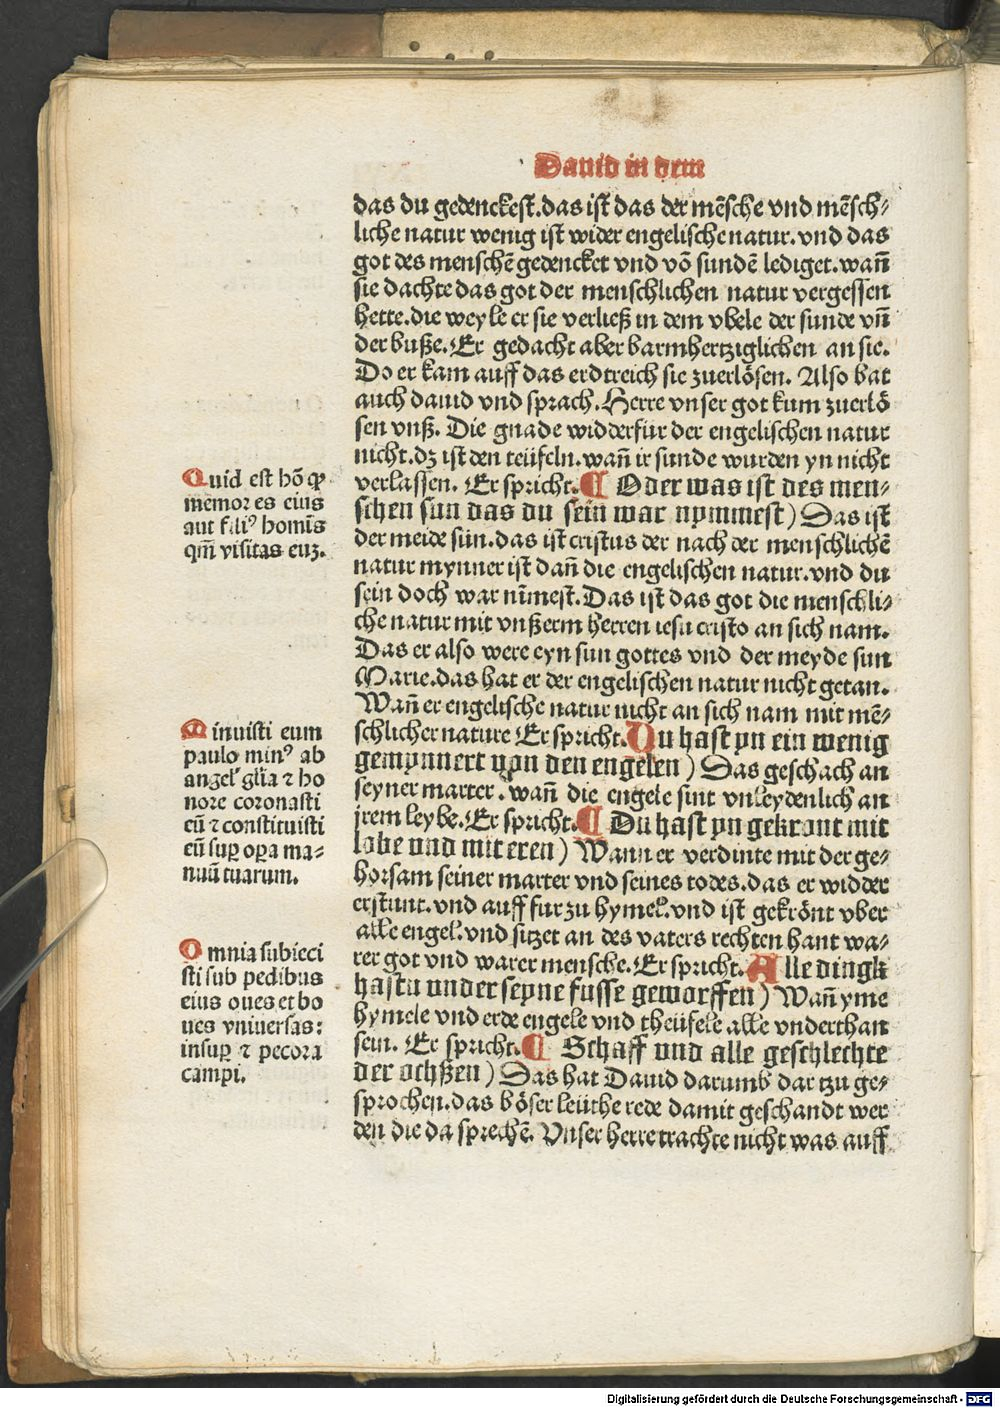 Dauid in dem
das du gedenckest.das ist das der mēsche vnd mēsch⸗
liche natur wenig ist wider engelische natur.vnd das
got des menschē gedencket vnd vō sundē lediget.wañ
sie dachte das got der menschlichen natur vergessen
hette.die weyle er sie verließ in dem vbele der sunde vñ
der buße.Er gedacht aber barmhertziglichen an sie.
Do er kam auff das erdtreich sie zuerlösen. Also bat
auch dauid vnd sprach.Herre vnser got kum zuerlö
sen vnß. Die gnade widderfur der engelischen natur
nicht.dz ist den teüfeln.wañ ir sunde wurden yn nicht
verlassen. Er spricht.¶ Oder was ist des men⸗
schen sun das du sein war nymmest) Das ist
der meide sün.das ist cristus der nach der menschlichē
natur mynner ist dañ die engelischen natur.vnd du
sein doch war nīmest.Das ist das got die menschli⸗
che natur mit vnßerm herren iesu cristo an sich nam.
Das er also were eyn sun gottes vnd der meyde sun
Marie.das hat er der engelischen natur nicht getan.
Wañ er engelische natur nicht an sich nam mit mē⸗
schlicher nature Er spricht.Du hast yn ein wenig
gemynnert von den engelen) Das geschach an
seyner marter.wañ die engele sint vnleydenlich an
jrem leybe.Er spricht.¶ Du hast yn gekront mit
lobe vnd mit eren) Wann er verdinte mit der ge⸗
horsam seiner marter vnd seines todes.das er widder
erstunt.vnd auff fur zu hymel.vnd ist gekrönt vber
alle engel.vnd sitzet an des vaters rechten hant wa⸗
rer got vnd warer mensche.Er spricht.Alle dingk
hastu vnder seyne fusse geworffen) Wañ yme
hymele vnd erde engele vnd theüfele alle vnderthan
sein. Er spricht.¶ Schaff vnd alle geschlechte
der ochßen) Das hat Dauid darumb dar tzu ge⸗
sprochen.das böser leüthe rede damit geschandt wer
den die da sprechē. Vnser herre trachte nicht was auff
Quid est hō ꝙ
memor es eius
aut filiꝰ homīs
qm̄ visitas euꝫ.
Minuisti eum
paulo minꝰ ab
angel' gl̄ia ⁊ ho
nore coronasti
eū ⁊ constituisti
eū suꝑ oꝑa ma⸗
nuū tuarum.
Omnia subieci
sti sub pedibus
eius oues et bo
ues vniuersas:
insuꝑ ⁊ pecora
campi.
Digitalisierung gefördert durch die Deutsche Forschungsgemeinschaft - DFG